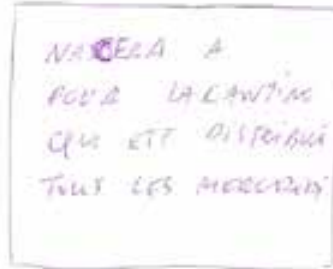 NACERA A
POUR LA CANTINE
QUI EST DISTRIBUÉ
TOUS LES MERCREDIS